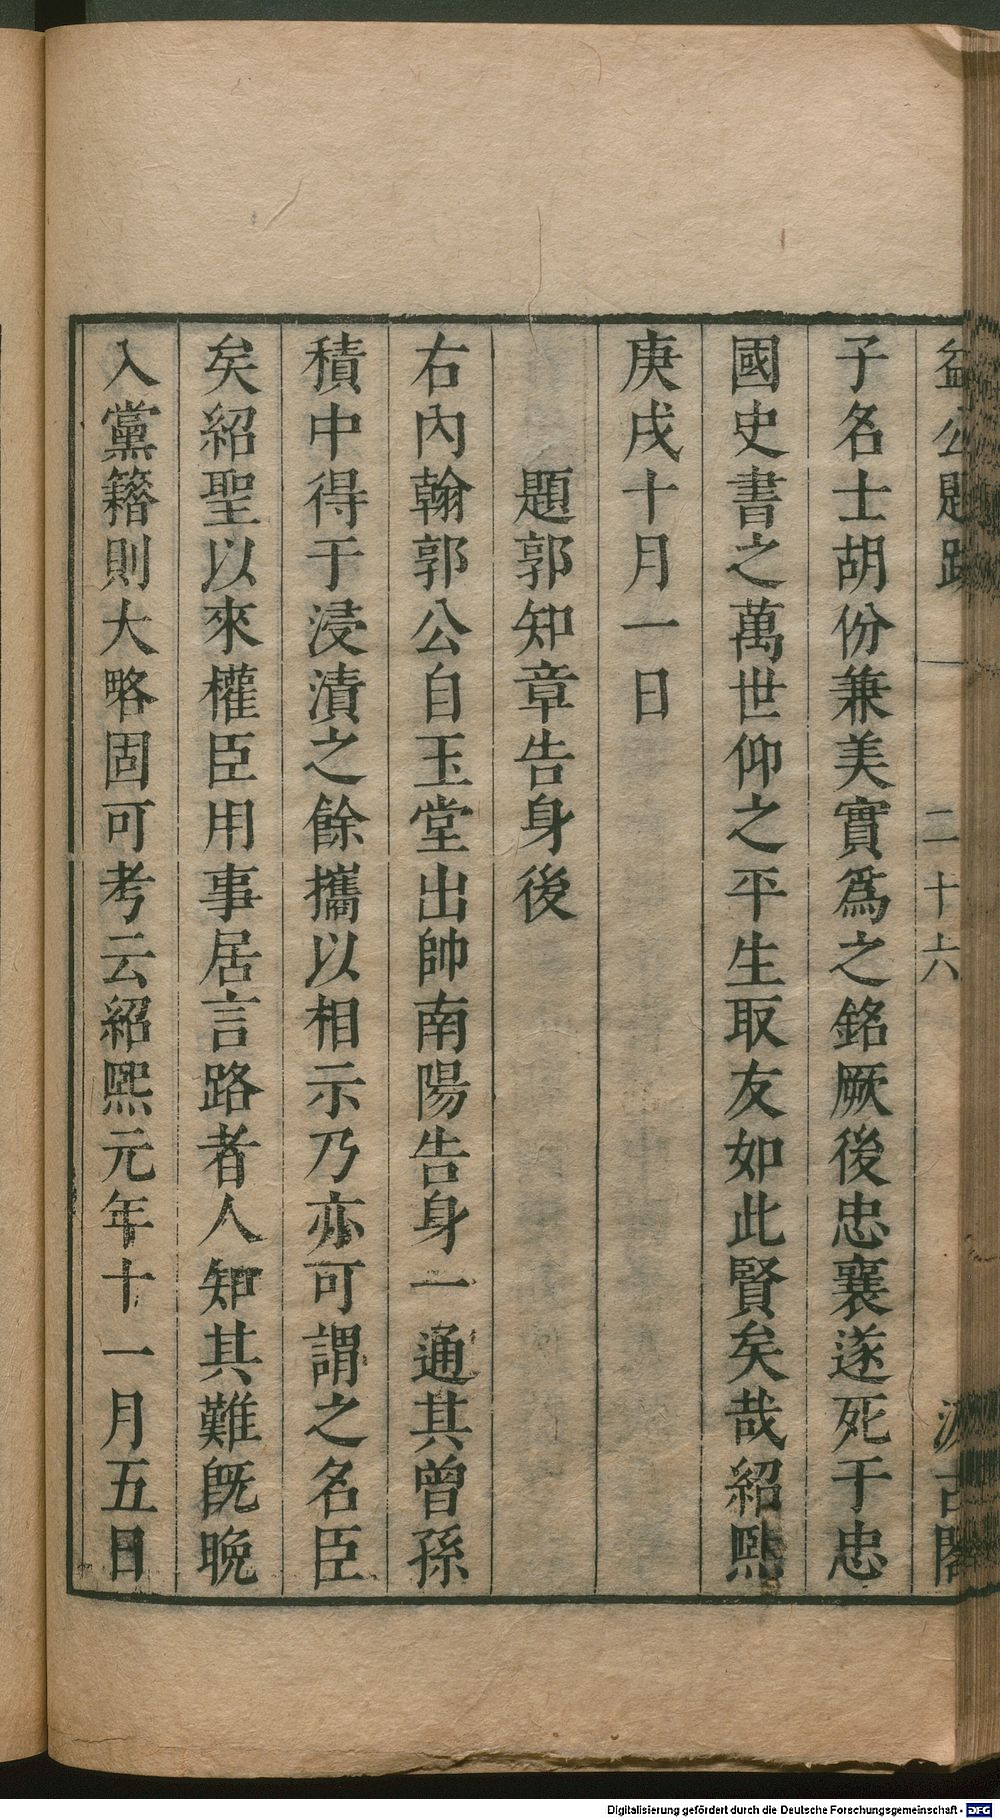 益公題跋 二十六 汲古閣
子名士胡份兼美實爲之銘厥後忠襄遂死于忠
國史書之萬世仰之平生取友如此賢矣哉紹熙
庚戌十月一日
題郭知章告身後
右內翰郭公自玉堂出帥南陽告身一通其曾孫
積中得于浸漬之餘攜以相示乃亦可謂之名臣
矣紹聖以來權臣用事居言路者人知其難旣晚
入黨籍則大略固可考云紹熙元年十一月五日
Digitalisierung gefördert durch die Deutsche Forschungsgemeinschaft - DFG